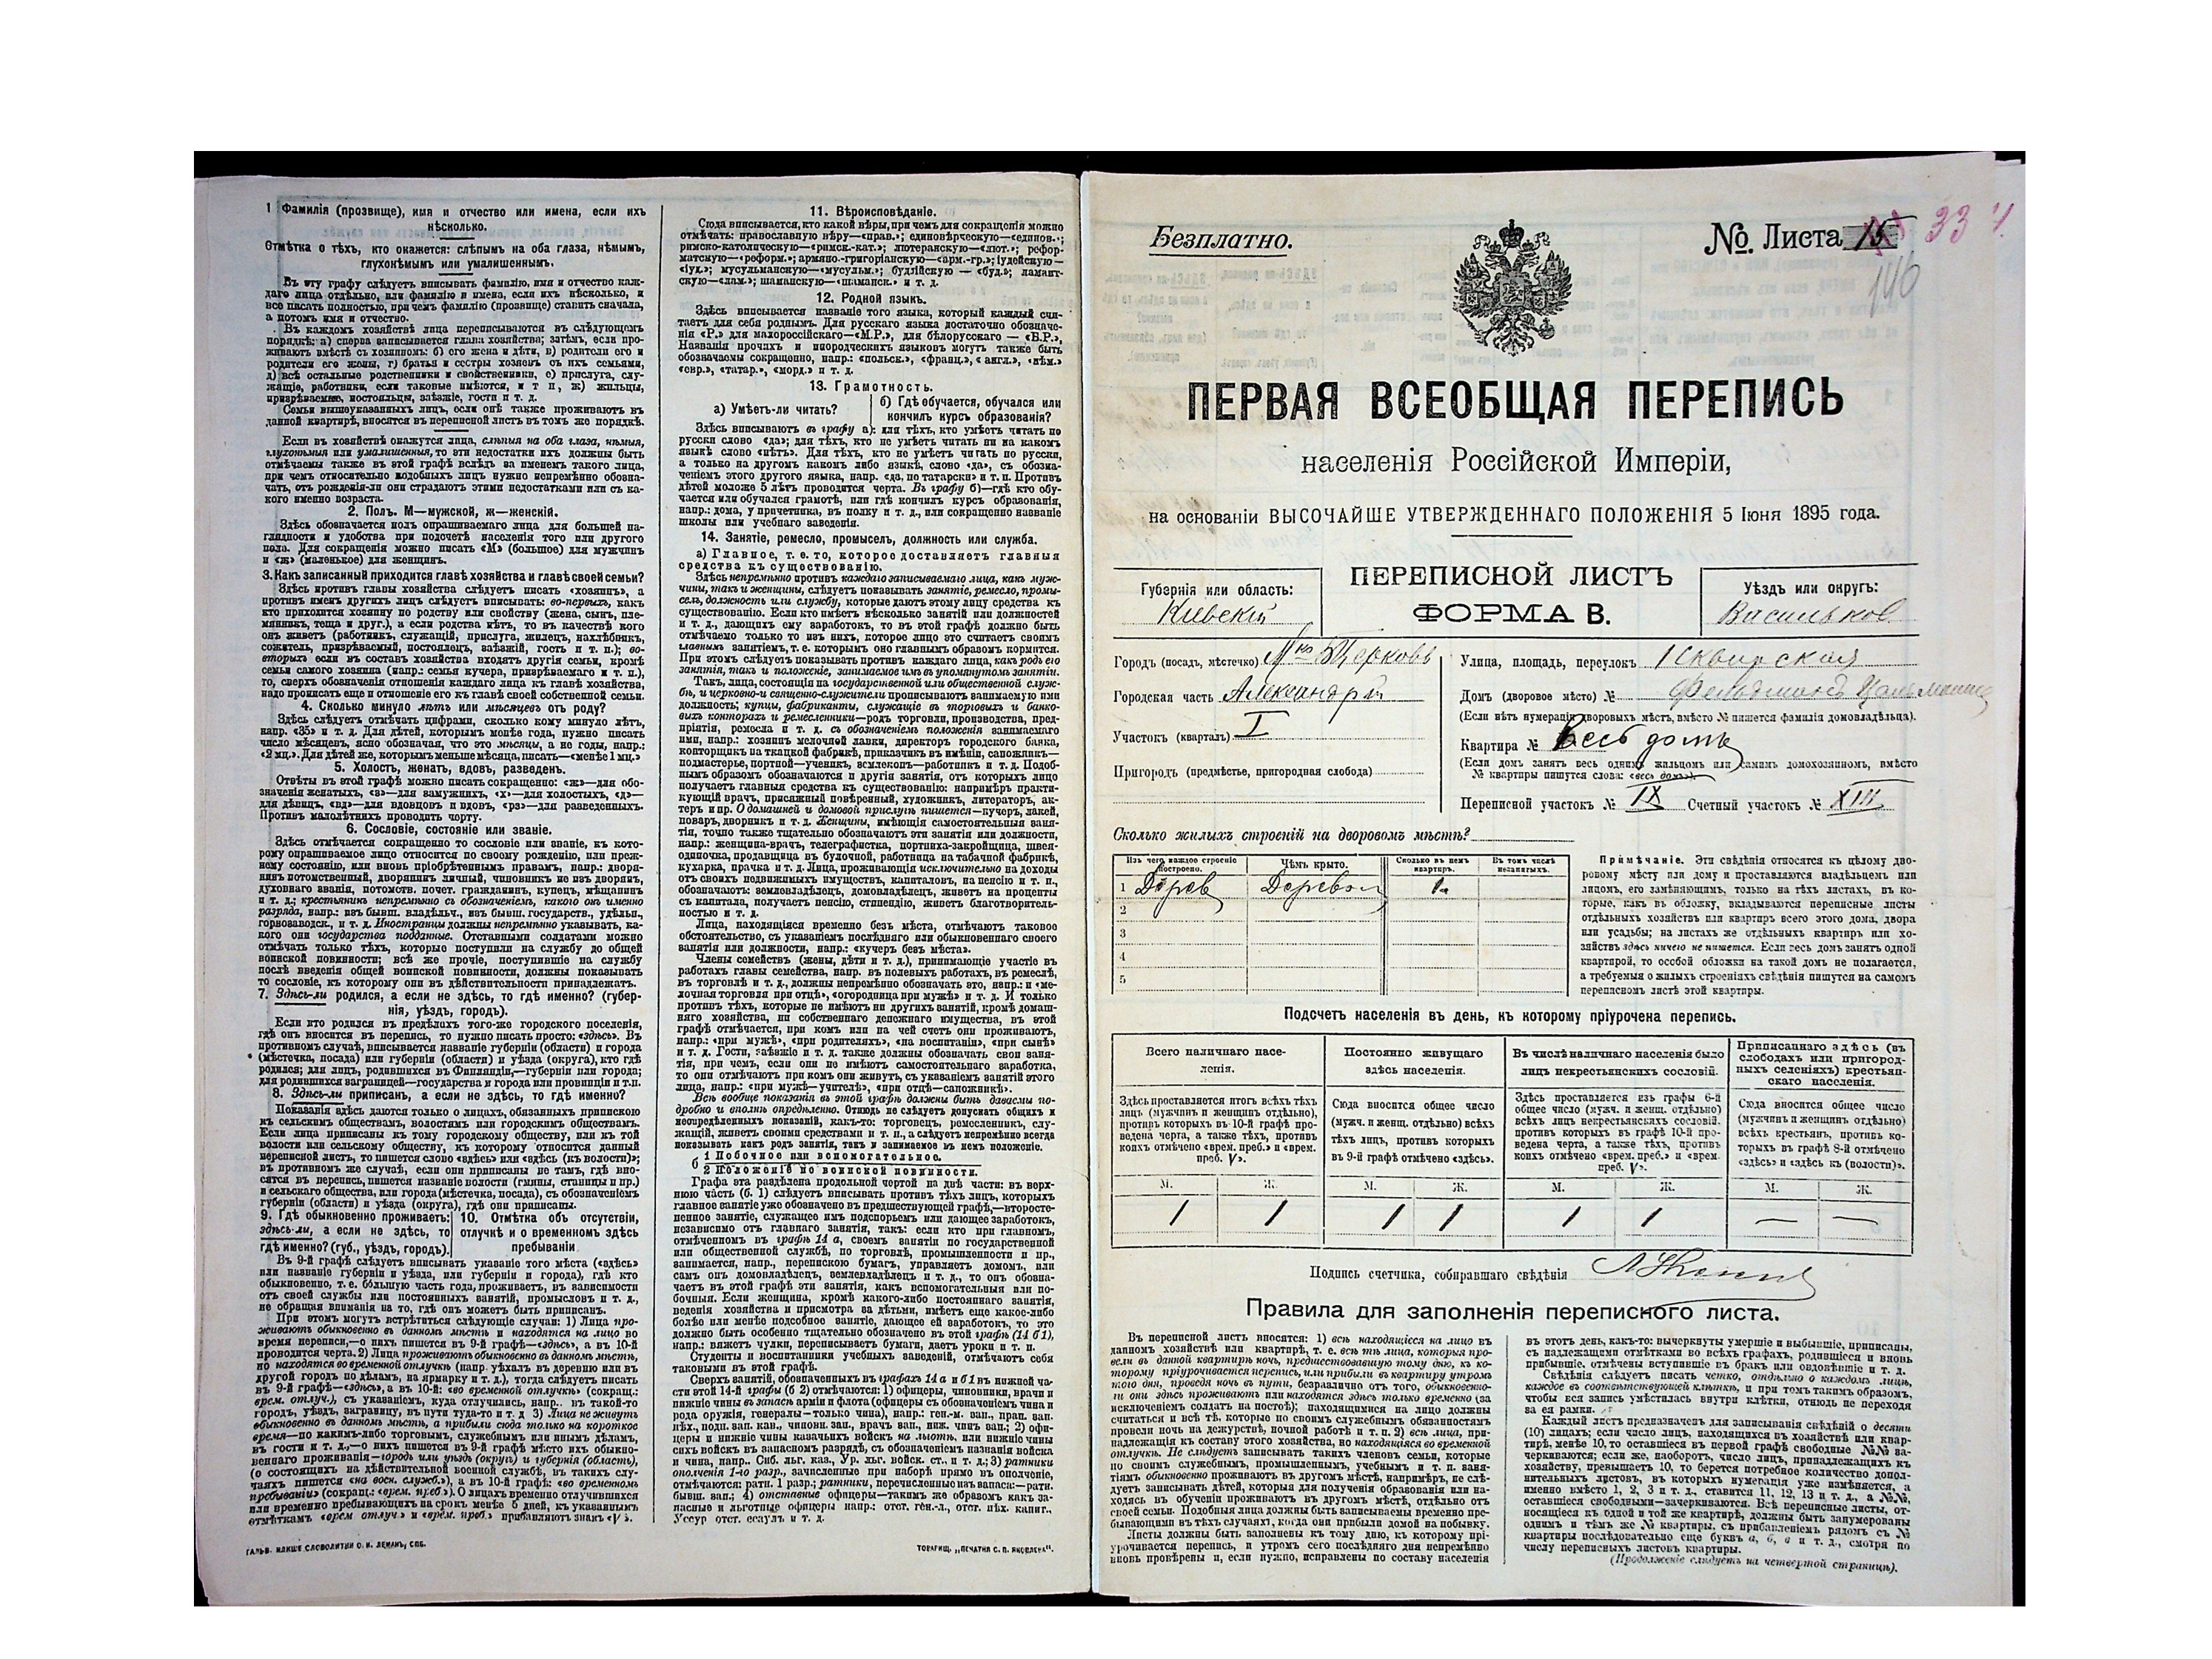 1 Фамилія (прозвище), имя и отчество или имена, если ихъ
нѣсколько.
Отмѣтка о тѣхъ, кто окажется: слѣпымъ на оба глаза, нѣмымъ,
глухонѣмымъ или умалишеннымъ.
Въ эту графу слѣдуетъ вписывать фамилію, имя и отчество каж-
даго лица отдѣльно, или фамилію и имена, если ихъ нѣсколько, и
все писать полностью, при чемъ фамилію (прозвище) ставить сначала,
а потомъ имя и отчество.
Въ каждомъ хозяйствѣ лица переписываются въ слѣдующемъ
порядкѣ: а) сперва записывается глава хозяйства; затѣмъ, если про-
живаютъ вмѣстѣ съ хозяиномъ: б) его жена и дѣти, в) родители его и
родители его жены, г) братья и сестры хозяевъ съ ихъ семьями,
д) всѣ остальные родственники и свойственники, е) прислуга, слу-
жащіе, работники, если таковые имѣются, и т п, ж) жильцы,
призрѣваемые, постояльцы, заѣзжіе, гости и т. д.
Семьи вышеуказанныхъ лицъ, если онѣ также проживаютъ въ
данной квартирѣ, вносятся въ переписной листъ въ томъ же порядкѣ.
Если въ хозяйствѣ окажутся лица, слѣпыя на оба глаза, нѣмыя,
глухонѣмыя или умалишенныя, то эти недостатки ихъ должны быть
отмѣчаемы также въ этой графѣ вслѣдъ за именемъ такого лица,
при чемъ относительно подобныхъ лицъ нужно непремѣнно обозна-
чать, отъ рожденія-ли они страдаютъ этими недостатками или съ ка-
кого именно возраста.
2. Полъ. М—мужской, ж—женскій.
Здѣсь обозначается полъ опрашиваемаго лица для большей на-
глядности и удобства при подсчетѣ населенія того или другого
пола. Для сокращенія можно писать «М» (большое) для мужчинъ
и «ж» (маленькое) для женщинъ.
3. Какъ записанный приходится главѣ хозяйства и главѣ своей семьи?
Здѣсь противъ главы хозяйства слѣдуетъ писать «хозяинъ», а
противъ именъ другихъ лицъ слѣдуетъ вписывать: во-первыхъ, какъ
кто приходится хозяину по родству или свойству (жена, сынъ, пле-
мянникъ, теща и друг.), а если родства нѣтъ, то въ качествѣ кого
онъ живетъ (работникъ, служащій, прислуга, жилецъ, нахлѣбникъ,
сожитель, призрѣваемый, постоялецъ, заѣзжій, гость и т. п.); во-
вторыхъ если въ составъ хозяйства входятъ другія семьи, кромѣ
семьи самого хозяина (напр.: семья кучера, призрѣваемаго и т. п.),
то, сверхъ обозначенія отношенія каждаго лица къ главѣ хозяйства,
надо прописать еще и отношеніе его къ главѣ своей собственной семьи.
4. Сколько минуло лѣтъ или мѣсяцевъ отъ роду?
Здѣсь слѣдуетъ отмѣчать цифрами, сколько кому минуло лѣтъ,
напр. «35» и т. д. Для дѣтей, которымъ менѣе года, нужно писать
число мѣсяцевъ, ясно обозначая, что это мѣсяцы, а не годы, напр.:
«2 мц.». Для дѣтей же, которымъ меньше мѣсяца, писать—«менѣе 1 мц.»
5. Холостъ, женатъ, вдовъ, разведенъ.
Отвѣты въ этой графѣ можно писать сокращенно: «ж»—для обо-
значенія женатыхъ, «з»—для замужнихъ, «х»—для холостыхъ, «д»—
для дѣвицъ, «вд»—для вдовцовъ и вдовъ, «рз»—для разведенныхъ.
Противъ малолѣтнихъ проводить черту.
6. Сословіе, состояніе или званіе.
Здѣсь отмѣчается сокращенно то сословіе или званіе, къ кото-
рому опрашиваемое лицо относится по своему рожденію, или преж-
нему состоянію, или вновь пріобрѣтеннымъ правамъ, напр.: дворя-
нинъ потомственный, дворянинъ личный, чиновникъ не изъ дворянъ,
духовнаго званія, потомств. почет. гражданинъ, купецъ, мѣщанинъ
и т. д.; крестьянинъ непремѣнно съ обозначеніемъ, какого онъ именно
разряда, напр.: изъ бывш. владѣльч., изъ бывш. государств., удѣльн.,
горнозаводск., и т. д. Иностранцы должны непремѣнно указывать, ка-
кого они государства подданные. Отставными солдатами можно
отмѣчать только тѣхъ, которые поступили на службу до общей
воинской повинности; всѣ же прочіе, поступившіе на службу
послѣ введенія общей воинской повинности, должны показывать
то сословіе, къ которому они въ дѣйствительности принадлежатъ.
7. Здѣсь-ли родился, а если не здѣсь, то гдѣ именно? (губер-
нія, уѣздъ, городъ).
Если кто родился въ предѣлахъ того-же городского поселенія,
гдѣ онъ вносится въ перепись, то нужно писать просто: «здѣсь». Въ
противномъ случаѣ, вписывается названіе губерніи (области) и города
(мѣстечка, посада) или губерніи (области) и уѣзда (округа), кто гдѣ
родился; для лицъ, родившихся въ Финляндіи,—губерніи или города;
для родившихся заграницей—государства и города или провинціи и т.п.
8. Здѣсь-ли приписанъ, а если не здѣсь, то гдѣ именно?
Показанія здѣсь даются только о лицахъ, обязанныхъ припискою
къ сельскимъ обществамъ, волостямъ или городскимъ обществамъ.
Если лица приписаны къ тому городскому обществу, или къ той
волости или сельскому обществу, къ которому относится данный
переписной листъ, то пишется слово «здѣсь» или «здѣсь (къ волости)»;
въ противномъ же случаѣ, если они приписаны не тамъ, гдѣ вно-
сятся въ перепись, пишется названіе волости (гмины, станицы и пр.)
и сельскаго общества, или города (мѣстечка, посада), съ обозначеніемъ
губерніи (области) и уѣзда (округа), гдѣ они приписаны.
9. Гдѣ обыкновенно проживаетъ:
здѣсь-ли, а если не здѣсь, то
гдѣ именно? (губ., уѣздъ, городъ).
10. Отмѣтка объ отсутствіи,
отлучкѣ и о временномъ здѣсь
пребываніи
Въ 9-й графѣ слѣдуетъ вписывать указаніе того мѣста («здѣсь»
или названіе губерніи и уѣзда, или губерніи и города), гдѣ кто
обыкновенно, т. е. большую часть года, проживаетъ, въ зависимости
отъ своей службы или постоянныхъ занятій, промысловъ и т. д.,
не обращая вниманія на то, гдѣ онъ можетъ быть приписанъ.
При этомъ могутъ встрѣтиться слѣдующіе случаи: 1) Лица про-
живаютъ обыкновенно въ данномъ мѣстѣ и находятся на лицо во
время переписи,—о нихъ пишется въ 9-й графѣ—«здѣсь», а въ 10-й
проводится черта. 2) Лица проживаютъ обыкновенно въ данномъ мѣстѣ,
но находятся во временной отлучкѣ (напр. уѣхалъ въ деревню или въ
другой городъ по дѣламъ, на ярмарку и т. д.), тогда слѣдуетъ писать
въ 9-й графѣ—«здѣсь», а въ 10-й: «во временной отлучкѣ» (сокращ.:
врем. отлуч.), съ указаніемъ, куда отлучились, напр.. въ такой-то
городъ, уѣздъ, заграницу, въ пути туда-то и т. д 3) Лица не живутъ
обыкновенно въ данномъ мѣстѣ, а прибыли сюда только на короткое
время—по какимъ-либо торговымъ, служебнымъ или инымъ дѣламъ,
въ гости и т. д.,—о нихъ пишется въ 9-й графѣ мѣсто ихъ обыкно-
веннаго проживанія—городъ или уѣздъ (округъ) и губернія (область),
(о состоящихъ на дѣйствительной военной службѣ, въ такихъ слу-
чаяхъ пишется «на воен. служб.»), а въ 10-й графѣ: «во временномъ
пребываніи» (сокращ.: «врем. преб»). О лицахъ временно отлучившихся
или временно пребывающихъ на срокъ менѣе 5 дней, къ указаннымъ
отмѣткамъ «врем отлуч.» и «врем. преб.» прибавляютъ знакъ «V».
ГАЛЬВ. КЛИШЕ СЛОВОЛИТНИ О. И. ЛЕМАНЪ, СПБ.
11. Вѣроисповѣданіе.
Сюда вписывается, кто какой вѣры, при чемъ для сокращенія можно
отмѣчать: православную вѣру—«прав.»; единовѣрческую—«единов.»;
римско-католическую—«римск.-кат.»; лютеранскую—«лют.»; рефор-
матскую—«реформ.»; армяно-григоріанскую—«арм.-гр.»; іудейскую—
«іуд.»; мусульманскую—«мусульм.»; буддійскую — «буд.»; ламаит-
скую—«лам.»; шаманскую—«шаманск.» и т. д.
12. Родной языкъ.
Здѣсь вписывается названіе того языка, который каждый счи-
таетъ для себя роднымъ. Для русскаго языка достаточно обозначе-
нія «Р.» для малороссійскаго—«М.Р.», для бѣлорусскаго — «Б.Р.»,
Названія прочихъ и инородческихъ языковъ могутъ также быть
обозначаемы сокращенно, напр.: «польск.», «франц.», « англ.», «нѣм.»
«евр.», «татар.», «морд.» и т. д.
13. Грамотность.
а) Умѣетъ-ли читать?
б) Гдѣ обучается, обучался или
кончилъ курсъ образованія?
Здѣсь вписываютъ въ графу а): для тѣхъ, кто умѣетъ читать по
русски слово «да»; для тѣхъ, кто не умѣетъ читать ни на какомъ
языкѣ слово «нѣтъ». Для тѣхъ, кто не умѣетъ читать по русски,
а только на другомъ какомъ либо языкѣ, слово «да», съ обозна-
ченіемъ этого другого языка, напр. «да, по татарски» и т. п. Противъ
дѣтей моложе 5 лѣтъ проводится черта. Въ графу б)—гдѣ кто обу-
чается или обучался грамотѣ, или гдѣ кончилъ курсъ образованія,
напр.: дома, у причетника, въ полку и т. д., или сокращенно названіе
школы или учебнаго заведенія.
14. Занятіе, ремесло, промыселъ, должность или служба.
а) Главное, т. е. то, которое доставляетъ главныя
средства къ существованію.
Здѣсь непремѣнно противъ каждаго записываемаго лица, какъ муж-
чины, такъ и женщины, слѣдуетъ показывать занятіе, ремесло, промы-
селъ, должность или службу, которые даютъ этому лицу средства къ
существованію. Если кто имѣетъ нѣсколько занятій или должностей
и т. д., дающихъ ему заработокъ, то въ этой графѣ должно быть
отмѣчаемо только то изъ нихъ, которое лицо это считаетъ своимъ
главнымъ занятіемъ, т. е. которымъ оно главнымъ образомъ кормится.
При этомъ слѣдуетъ показывать противъ каждаго лица, какъ родъ его
занятія, такъ и положеніе, занимаемое имъ въ упомянутомъ занятіи.
Такъ, лица, состоящія на государственной или общественной служ-
бѣ, и церковно-и священно-служители прописываютъ занимаемую ими
должность; купцы, фабриканты, служащіе въ торговыхъ и банко-
выхъ конторахъ и ремесленники—родъ торговли, производства, пред-
пріятія, ремесла и т. д. съ обозначеніемъ положенія занимаемаго
ими, напр.: хозяинъ мелочной лавки, директоръ городского банка,
конторщикъ на ткацкой фабрикѣ, приказчикъ въ имѣніи, сапожникъ—
подмастерье, портной—ученикъ, землекопъ—работникъ и т. д. Подоб-
нымъ образомъ обозначаются и другія занятія, отъ которыхъ лицо
получаетъ главныя средства къ существованію: напримѣръ практи-
кующій врачъ, присяжный повѣренный, художникъ, литераторъ, ак-
теръ и пр. О домашней и домовой прислугѣ пишется—кучеръ, лакей,
поваръ, дворникъ и т. д. Женщины, имѣющія самостоятельныя заня-
тія, точно также тщательно обозначаютъ эти занятія или должности,
напр.: женщина-врачъ, телеграфистка, портниха-закройщица, швея-
одиночка, продавщица въ булочной, работница на табачной фабрикѣ,
кухарка, прачка и т. д. Лица, проживающія исключительно на доходы
отъ своихъ недвижимыхъ имуществъ, капиталовъ, на пенсію и т. п.,
обозначаютъ: землевладѣлецъ, домовладѣлецъ, живетъ на проценты
съ капитала, получаетъ пенсію, стипендію, живетъ благотворитель-
ностью и т. д.
Лица, находящіяся временно безъ мѣста, отмѣчаютъ таковое
обстоятельство, съ указаніемъ послѣдняго или обыкновеннаго своего
занятія или должности, напр.: «кучеръ безъ мѣста».
Члены семействъ (жены, дѣти и т. д.), принимающіе участіе въ
работахъ главы семейства, напр. въ полевыхъ работахъ, въ ремеслѣ,
въ торговлѣ и т. д., должны непремѣнно обозначать это, напр.: и «ме-
лочная торговля при отцѣ», «огородница при мужѣ» и т. д. И только
противъ тѣхъ, которые не имѣютъ ни другихъ занятій, кромѣ домаш-
няго хозяйства, ни собственнаго денежнаго имущества, въ этой
графѣ отмѣчается, при комъ или на чей счетъ они проживаютъ,
напр.: «при мужѣ», «при родителяхъ», «на воспитаніи», «при сынѣ»
и т. д. Гости, заѣзжіе и т. д. также должны обозначать свои заня-
тія, при чемъ, если они не имѣютъ самостоятельнаго заработка,
то они отмѣчаютъ при комъ они живутъ, съ указаніемъ занятій этого
лица, напр.: «при мужѣ—учителѣ», «при отцѣ—сапожникѣ».
Всѣ вообще показанія въ этой графѣ должны быть даваемы по-
дробно и вполнѣ опредѣленно. Отнюдь не слѣдуетъ допускать общихъ и
неопредѣленныхъ показаній, какъ-то: торговецъ, ремесленникъ, слу-
жащій, живетъ своими средствами и т. п., а слѣдуетъ непремѣнно всегда
показывать какъ родъ занятія, такъ и занимаемое въ немъ положеніе.
б
1 Побочное или вспомогательное.
2 Положеніе по воинской повинности.
Графа эта раздѣлена продольной чертой на двѣ части: въ верх-
нюю часть (б. 1) слѣдуетъ вписывать противъ тѣхъ лицъ, которыхъ
главное занятіе уже обозначено въ предшествующей графѣ,—второсте-
пенное занятіе, служащее имъ подспорьемъ или дающее заработокъ,
независимо отъ главнаго занятія, такъ: если кто при главномъ,
отмѣченномъ въ графѣ 14 а, своемъ занятіи по государственной
или общественной службѣ, по торговлѣ, промышленности и пр.,
занимается, напр., перепискою бумагъ, управляетъ домомъ, или
самъ онъ домовладѣлецъ, землевладѣлецъ и т. д., то онъ обозна-
чаетъ въ этой графѣ эти занятія, какъ вспомогательныя или по-
бочныя. Если женщина, кромѣ какого-либо постояннаго занятія,
веденія хозяйства и присмотра за дѣтьми, имѣетъ еще какое-либо
болѣе или менѣе подсобное занятіе, дающее ей заработокъ, то это
должно быть особенно тщательно обозначено въ этой графѣ (14 б 1),
напр.: вяжетъ чулки, переписываетъ бумаги, даетъ уроки и т. п.
Студенты и воспитанники учебныхъ заведеній, отмѣчаютъ себя
таковыми въ этой графѣ.
Сверхъ занятій, обозначенныхъ въ графахъ 14 а и б 1 въ нижней ча-
сти этой 14-й графы (б 2) отмѣчаются: 1) офицеры, чиновники, врачи и
нижніе чины въ запасѣ арміи и флота (офицеры съ обозначеніемъ чина и
рода оружія, генералы—только чина), напр.: ген-м. зап., прап. зап.
пѣх., подп. зап. кав., чиновн. зап., врачъ зап., ниж. чинъ зап.; 2) офи-
церы и нижніе чины казачьихъ войскъ на льготѣ, или нижніе чины
сихъ войскъ въ запасномъ разрядѣ, съ обозначеніемъ названія войска
и чина, напр.. Сиб. льг. каз., Ур. льг. войск. ст., и т. д.; 3) ратники
ополченія 1-го разр., зачисленные при наборѣ прямо въ ополченіе,
отмѣчаются: ратн. 1 разр.; ратники, перечисленные изъ запаса:—ратн.
бывш. зап.; 4) отставные офицеры—такимъ же образомъ какъ за-
пасные и льготные офицеры напр.: отст. ген.-л., отст. пѣх. капит.,
Уссур отст. есаулъ и т. д.
ТОВАРИЩ. „ПЕЧАТНЯ С. П. ЯКОВЛЕВА".
Безплатно.
№ Листа 15
33
146
ПЕРВАЯ ВСЕОБЩАЯ ПЕРЕПИСЬ
населенія Россійской Имперіи,
на основаніи ВЫСОЧАЙШЕ УТВЕРЖДЕННАГО ПОЛОЖЕНІЯ 5 Іюня 1895 года.
ПЕРЕПИСНОЙ ЛИСТЪ
ФОРМА В.
Губернія или область:
Кіевскій
Уѣздъ или округъ:
Васильков
Городъ (посадъ, мѣстечко) Мко Б Церковь
Городская часть Александрій
Участокъ (кварталъ) I
Пригородъ (предмѣстье, пригородная слобода)
Улица, площадь, переулокъ Сквирская
Домъ (дворовое мѣсто) № Фельдманъ
(Если нѣтъ нумераціи дворовыхъ мѣстъ, вмѣсто № пишется фамилія домовладѣльца).
Квартира № Весь домъ
(Если домъ занятъ весь однимъ жильцомъ или самимъ домохозяиномъ, вмѣсто
№ квартиры пишутся слова: «весь домъ»).
Переписной участокъ № IX Счетный участокъ № XIII
Сколько жилыхъ строеній на дворовомъ мѣстѣ?
Изъ чего каждое строеніе построено.
Чѣмъ крыто.
Сколько въ немъ квартиръ.
Въ томъ числѣ незанятыхъ.
1 Дерев Деревом 1
2
3
4
5
Примѣчаніе. Эти свѣдѣнія относятся къ цѣлому дво-
ровому мѣсту или дому и проставляются владѣльцемъ или
лицомъ, его замѣняющимъ, только на тѣхъ листахъ, въ ко-
торые, какъ въ обложку, вкладываются переписные листы
отдѣльныхъ хозяйствъ или квартиръ всего этого дома, двора
или усадьбы; на листахъ же отдѣльныхъ квартиръ или хо-
зяйствъ здѣсь ничего не пишется. Если весь домъ занятъ одной
квартирой, то особой обложки на такой домъ не полагается,
а требуемыя о жилыхъ строеніяхъ свѣдѣнія пишутся на самомъ
переписномъ листѣ этой квартиры.
Подсчетъ населенія въ день, къ которому пріурочена перепись.
Всего наличнаго насе-
ленія.
Здѣсь проставляется итогъ всѣхъ тѣхъ
лицъ (мужчинъ и женщинъ отдѣльно),
противъ которыхъ въ 10-й графѣ про-
ведена черта, а также тѣхъ, противъ
коихъ отмѣчено «врем. преб.» и «врем.
преб. V».
Постоянно живущаго
здѣсь населенія.
Сюда вносится общее число
(мужч. и женщ. отдѣльно) всѣхъ
тѣхъ лицъ, противъ которыхъ
въ 9-й графѣ отмѣчено «здѣсь».
Въ числѣ наличнаго населенія было
лицъ некрестьянскихъ сословій.
Здѣсь проставляется изъ графы 6-й
общее число (мужч. и женщ. отдѣльно)
всѣхъ лицъ некрестьянскихъ сословій,
противъ которыхъ въ графѣ 10-й про-
ведена черта, а также тѣхъ, противъ
коихъ отмѣчено «врем. преб.» и «врем.
преб. V».
Приписаннаго здѣсь (въ
слободахъ или пригород-
ныхъ селеніяхъ) крестьян-
скаго населенія.
Сюда вносится общее число
(мужчинъ и женщинъ отдѣльно)
всѣхъ крестьянъ, противъ ко-
торыхъ въ графѣ 8-й отмѣчено
«здѣсь» и «здѣсь къ (волости)».
М. Ж. М. Ж. М. Ж. М. Ж.
1 1 1 1 1 1 — —
Подпись счетчика, собиравшаго свѣдѣнія
Правила для заполненія переписного листа.
Въ переписной листъ вносятся: 1) всѣ находящіеся на лицо въ
данномъ хозяйствѣ или квартирѣ, т. е. всѣ тѣ лица, которыя про-
вели въ данной квартирѣ ночь, предшествовавшую тому дню, къ ко-
торому пріурочивается перепись, или прибыли въ квартиру утромъ
того дня, проведя ночь въ пути, безразлично отъ того, обыкновенно-
ли они здѣсь проживаютъ или находятся здѣсь только временно (за
исключеніемъ солдатъ на постоѣ); находящимися на лицо должны
считаться и всѣ тѣ, которые по своимъ служебнымъ обязанностямъ
провели ночь на дежурствѣ, ночной работѣ и т. п. 2) всѣ лица, при-
надлежащія къ составу этого хозяйства, но находящіяся во временной
отлучкѣ. Не слѣдуетъ записывать такихъ членовъ семьи, которые
по своимъ служебнымъ, промышленнымъ, учебнымъ и т. п. заня-
тіямъ обыкновенно проживаютъ въ другомъ мѣстѣ, напримѣръ, не слѣ-
дуетъ записывать дѣтей, которыя для полученія образованія или на-
ходясь въ обученіи проживаютъ въ другомъ мѣстѣ, отдѣльно отъ
своей семьи. Подобныя лица должны быть записываемы временно пре-
бывающими въ тѣхъ случаяхъ, когда они прибыли домой на побывку.
Листы должны быть заполнены къ тому дню, къ которому прі-
урочивается перепись, и утромъ сего послѣдняго дня непремѣнно
вновь провѣрены и, если нужно, исправлены по составу населенія
въ этотъ день, какъ-то: вычеркнуты умершіе и выбывшіе, приписаны,
съ надлежащими отмѣтками во всѣхъ графахъ, родившіеся и вновь
прибывшіе, отмѣчены вступившіе въ бракъ или овдовѣвшіе и т. д.
Свѣдѣнія слѣдуетъ писать четко, отдѣльно о каждомъ лицѣ,
каждое въ соотвѣтствующей клѣткѣ, и при томъ такимъ образомъ,
чтобы вся запись умѣстилась внутри клѣтки, отнюдь не переходя
за ея рамки.
Каждый листъ предназначенъ для записыванія свѣдѣній о десяти
(10) лицахъ; если число лицъ, находящихся въ хозяйствѣ или квар-
тирѣ, менѣе 10, то оставшіеся въ первой графѣ свободные №№ за-
черкиваются; если же, наоборотъ, число лицъ, принадлежащихъ къ
хозяйству, превышаетъ 10, то берется потребное количество допол-
нительныхъ листовъ, въ которыхъ нумерація уже измѣняется, а
именно вмѣсто 1, 2, 3 и т. д., ставится 11, 12, 13 и т. д., а №№,
оставшіеся свободными—зачеркиваются. Всѣ переписные листы, от-
носящіеся къ одной и той же квартирѣ, должны быть занумерованы
однимъ и тѣмъ же № квартиры, съ прибавленіемъ рядомъ съ №
квартиры послѣдовательно еще буквъ а, б, в и т. д., смотря по
числу переписныхъ листовъ квартиры.
(Продолженіе слѣдуетъ на четвертой страницѣ).